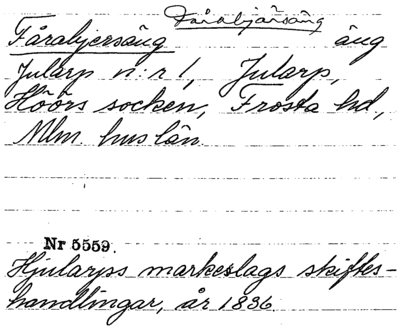 Fårabjärsäng
Fårabjersäng äng
Jularp n:r 1, Jularp,
Höörs socken, Frosta hd.,
Mlm. hus län.
Nr 5559.
Hjularps markeslags skiftes-
handlingar, år 1836.